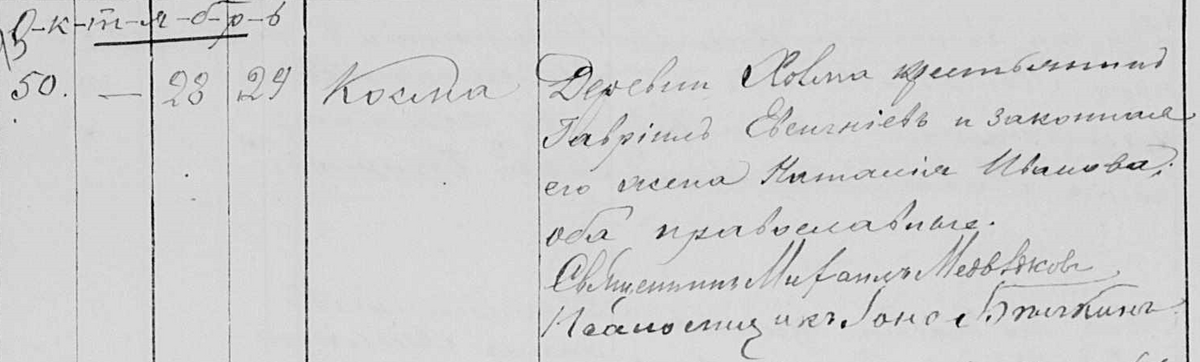 О-к-т-я-б-р-ь
50. — 28 29 Косма
Деревни Холма крестьянинъ
Гавріилъ Евгеніевъ и законная
его жена Наталія Иванова,
оба православные.
Священникъ Михаилъ Медвѣдковъ
Псаломщикъ